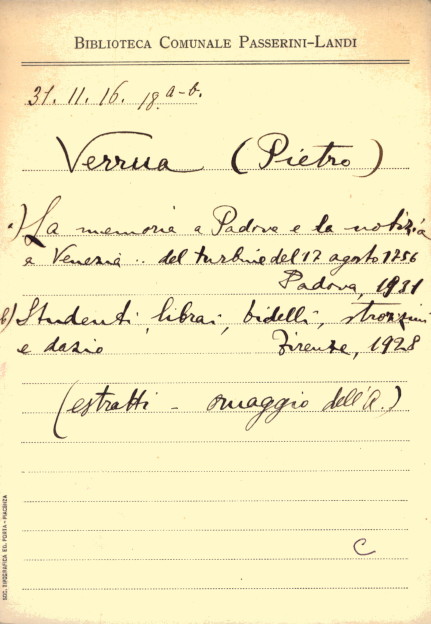 BIBLIOTECA COMUNALE PASSERINI-LANDI
31. 11. 16. 18. a-b.
Verrua (Pietro)
a) La memoria a Padova e la notizia
a Venezia .. del turbine del 17 agosto 1756
Padova, 1931
b) Studenti, librai, bidelli, strozzini
e dazio Firenze, 1928
(estratti - omaggio dell'A.)
C
SOC. TIPOGRAFICA ED. PORTA - PIACENZA